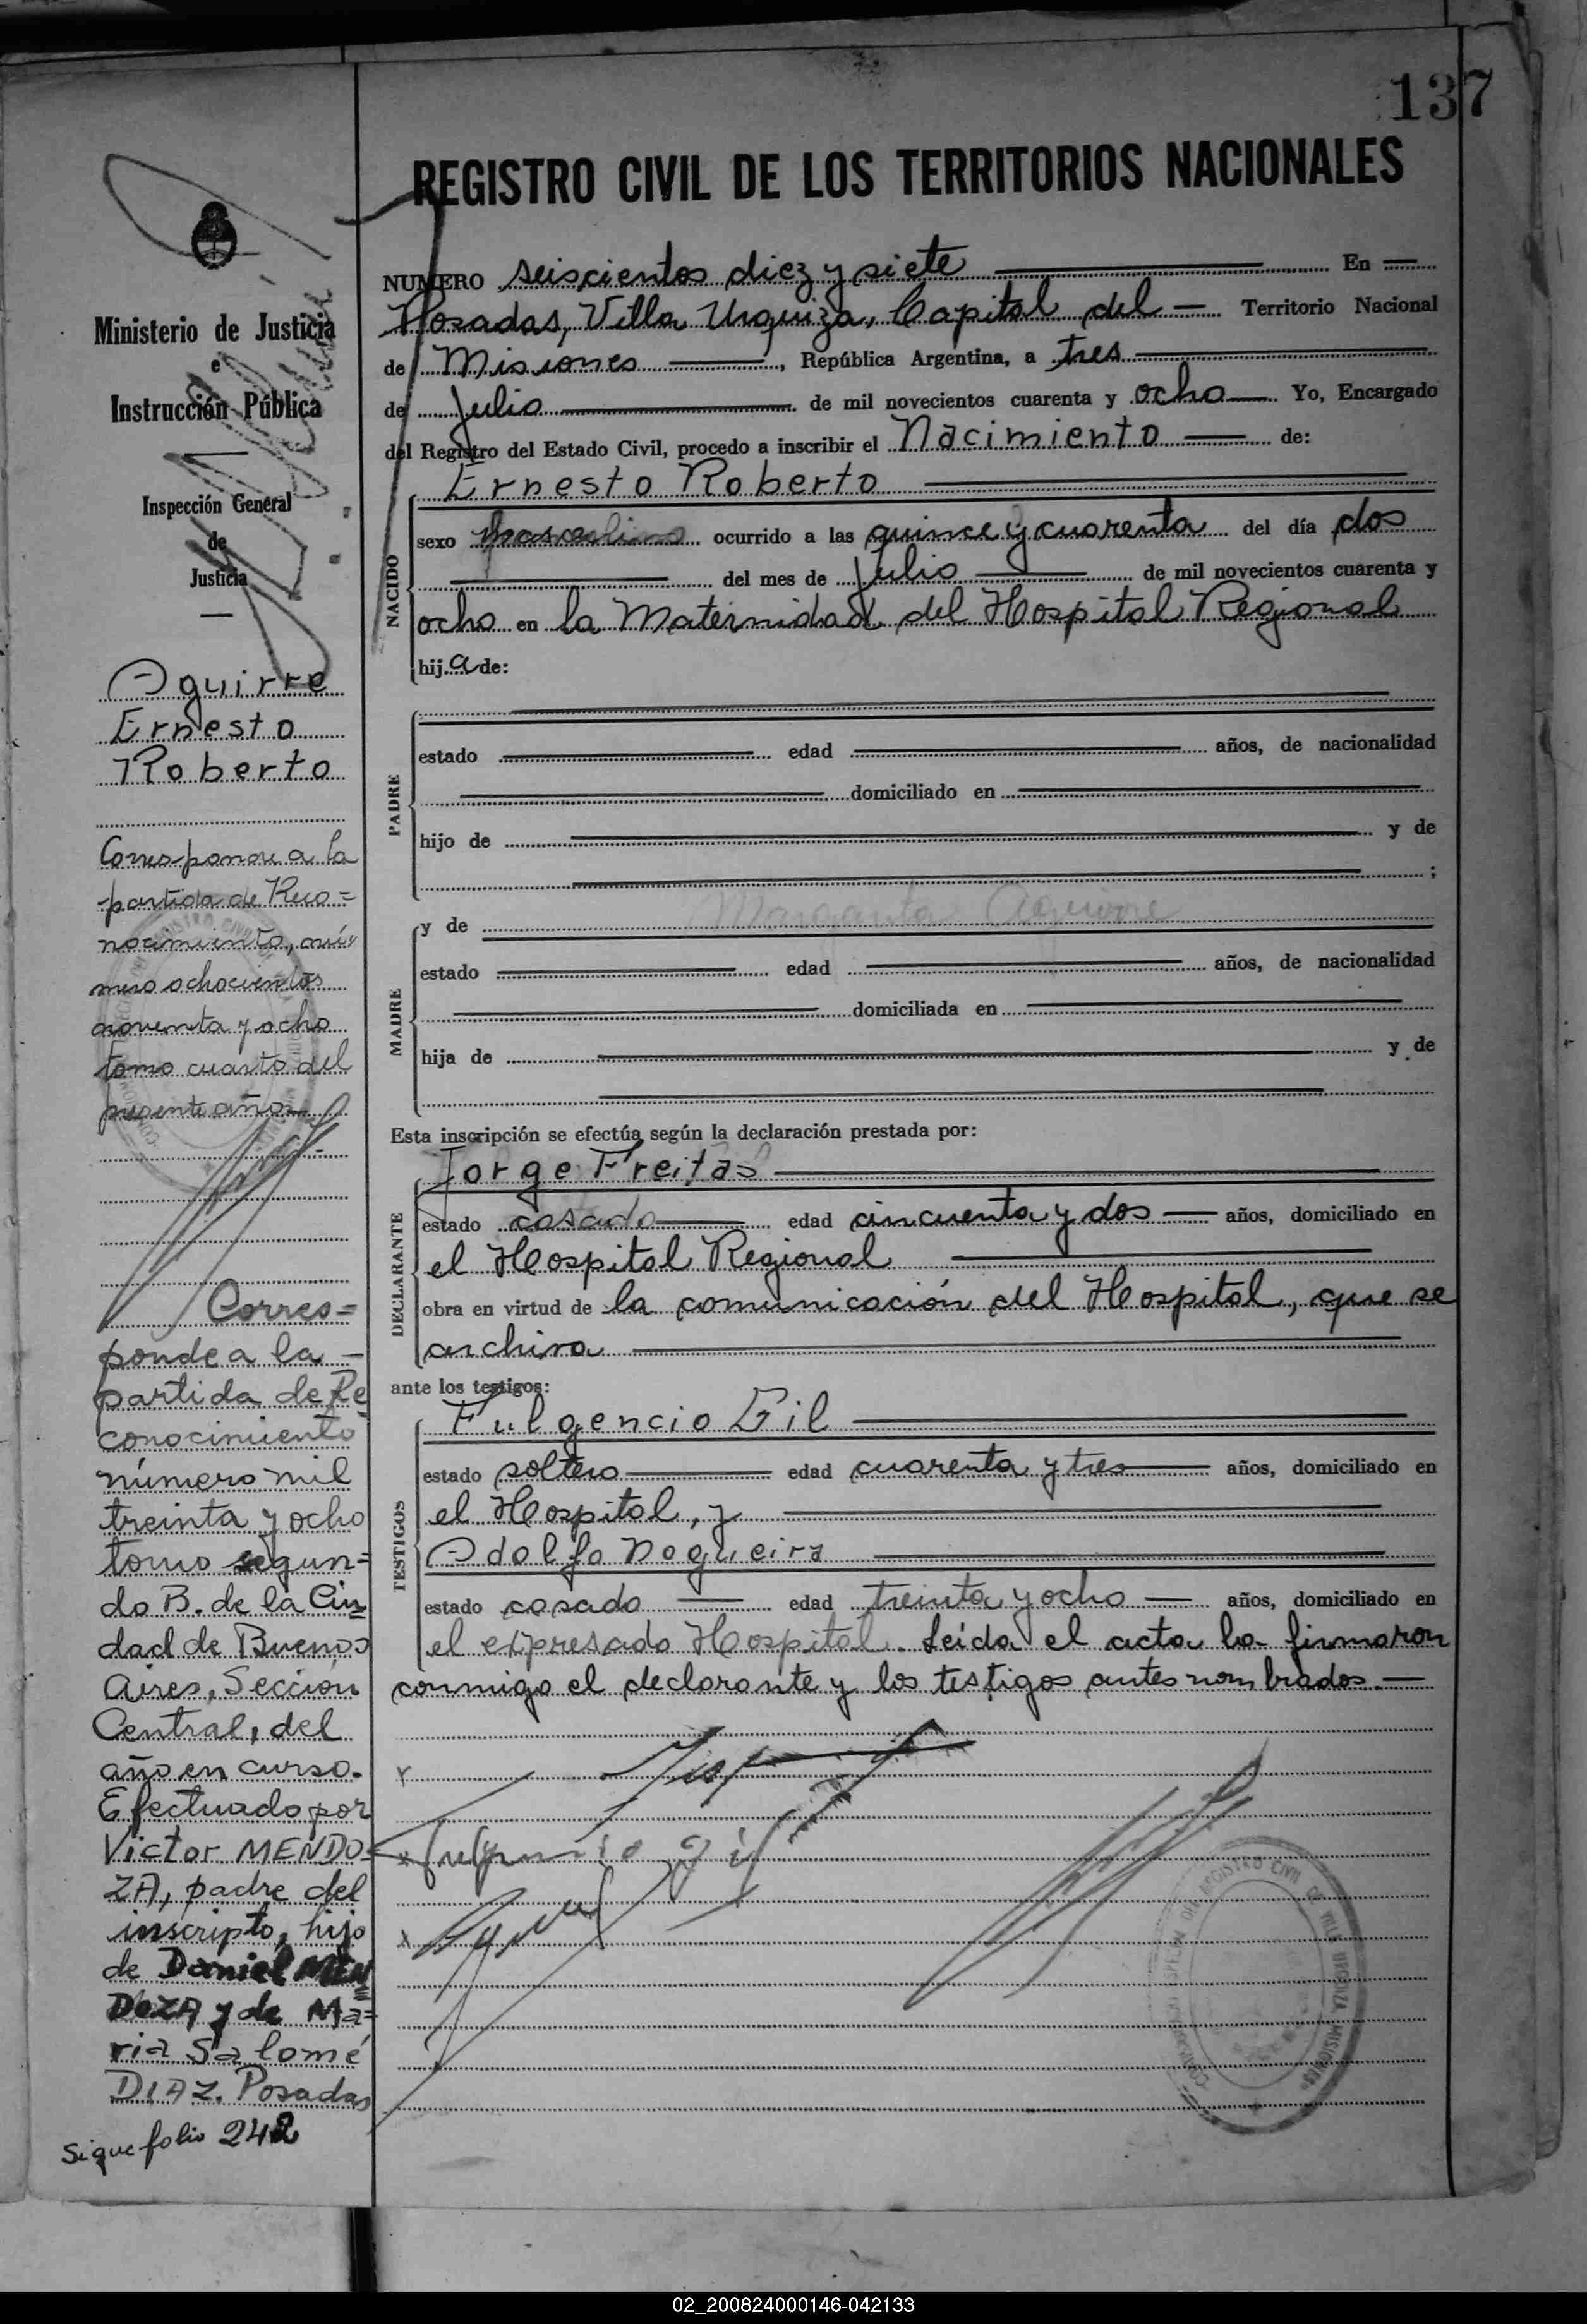 137
REGISTRO CIVIL DE LOS TERRITORIOS NACIONALES
NUMERO seiscientos diez y siete En
Posadas, Villa Urquiza, Capital del Territorio Nacional
de Misiones, República Argentina, a tres
de Julio de mil novecientos cuarenta y ocho Yo, Encargado
del Registro del Estado Civil, procedo a inscribir el Nacimiento de:
Ernesto Roberto
NACIDO
sexo masculino ocurrido a las quince y cuarenta del día dos
del mes de Julio de mil novecientos cuarenta y
ocho en la Maternidad del Hospital Regional
hij a de:
PADRE
estado edad años, de nacionalidad
domiciliado en
hijo de y de
;
MADRE
y de Margarita Aguirre
estado edad años, de nacionalidad
domiciliada en
hija de y de
Esta inscripción se efectúa según la declaración prestada por:
DECLARANTE
Jorge Freitas
estado casado edad cincuenta y dos años, domiciliado en
el Hospital Regional
obra en virtud de la comunicación del Hospital, que se
archiva
ante los testigos:
TESTIGOS
Fulgencio Gil
estado soltero edad cuarenta y tres años, domiciliado en
el Hospital, y
Adolfo Nogueira
estado casado edad treinta y ocho años, domiciliado en
el expresado Hospital. Leída el acta la firmaron
conmigo el declarante y los testigos antes nombrados.
Fulgencio gil
Ministerio de Justicia
e
Instrucción Pública
Inspección General
de
Justicia
Aguirre
Ernesto
Roberto
Corresponde a la
partida de Reco=
nocimiento, nú-
mero ochocientos
noventa y ocho
tomo cuarto del
presente año
Corres=
ponde a la
partida de Re
conocimiento
número mil
treinta y ocho
tomo segun=
do B. de la Ciu=
dad de Buenos
Aires, Sección
Central, del
año en curso.
Efectuado por
Victor MENDO=
ZA, padre del
inscripto, hijo
de Daniel MEN=
DOZA y de Ma=
ria Salomé
DIAZ. Posadas
Sigue folio 242
02_200824000146-042133